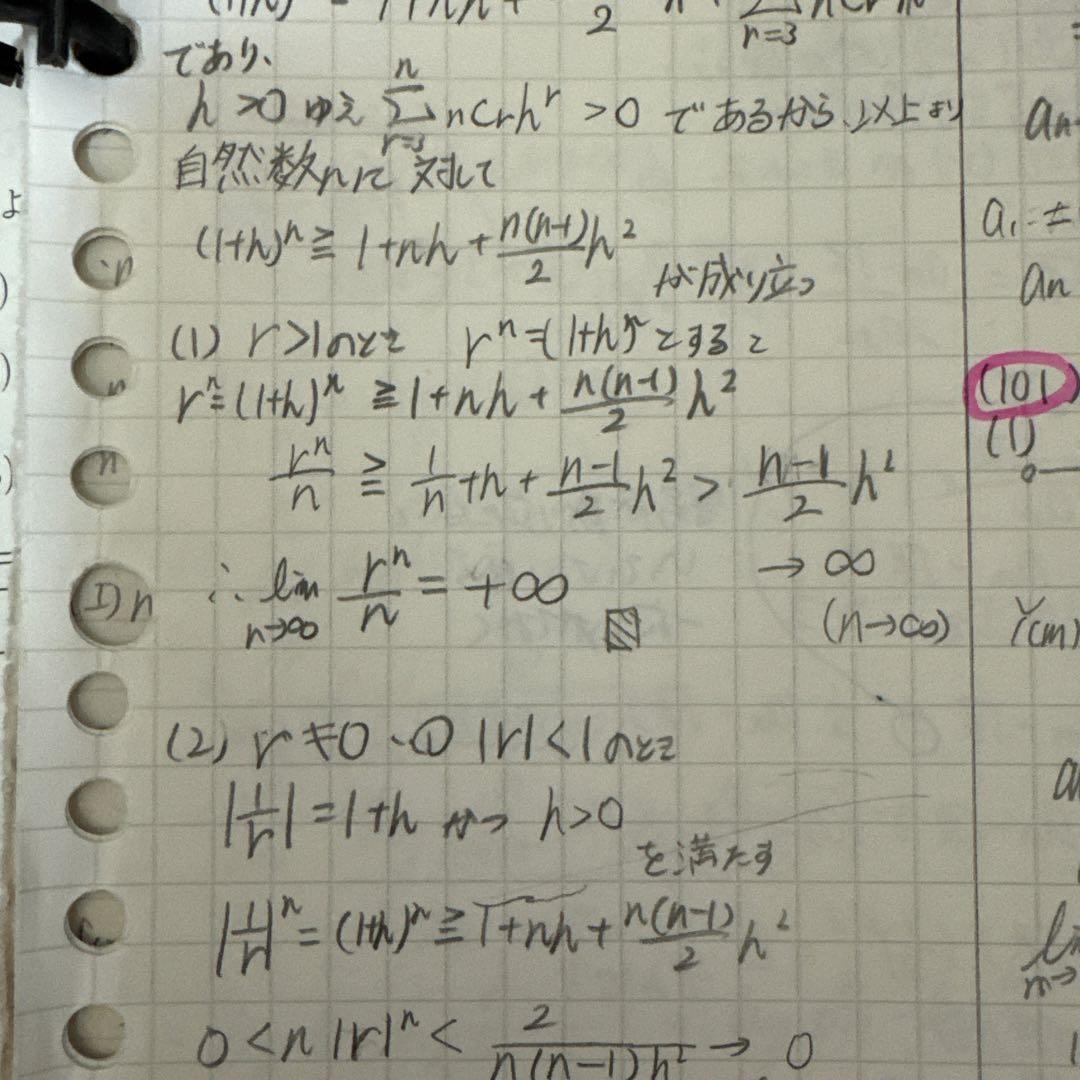 であり、
h>0 ゆえ Σ[r=3→n] nCr h^r > 0 であるから、以上より
自然数nに対して
(1+h)^n ≧ 1+nh+ n(n-1)/2 h^2
が成り立つ
(1) r>1のとき r^n=(1+h)^n とすると
r^n=(1+h)^n ≧ 1+nh+ n(n-1)/2 h^2
r^n/n ≧ 1/n +h+ (n-1)/2 h^2 > (n-1)/2 h^2
→ ∞
∴ lim[n→∞] r^n/n = +∞
(n→∞)
(2) r≠0、① |r|<1のとき
|1/r| = 1+h かつ h>0
を満たす
|1/r|^n = (1+h)^n ≧ 1+nh+ n(n-1)/2 h^2
0 < n|r|^n < 2/(n(n-1)h^2) → 0
an
a1 ≠
an
(101)
(1)
Y(m)